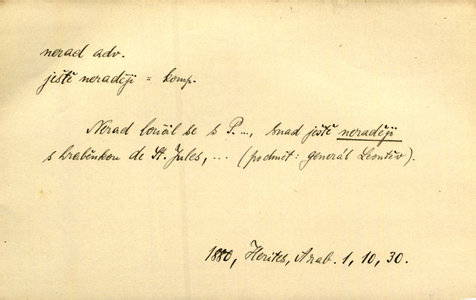 nerad adv.
ještě neraději = komp.
Nerad loučil se s P..., snad ještě neraději
s hraběnkou de St. Jules, ... (podmět: generál Leontěv).
1880, Herites, Arab. 1, 10, 30.